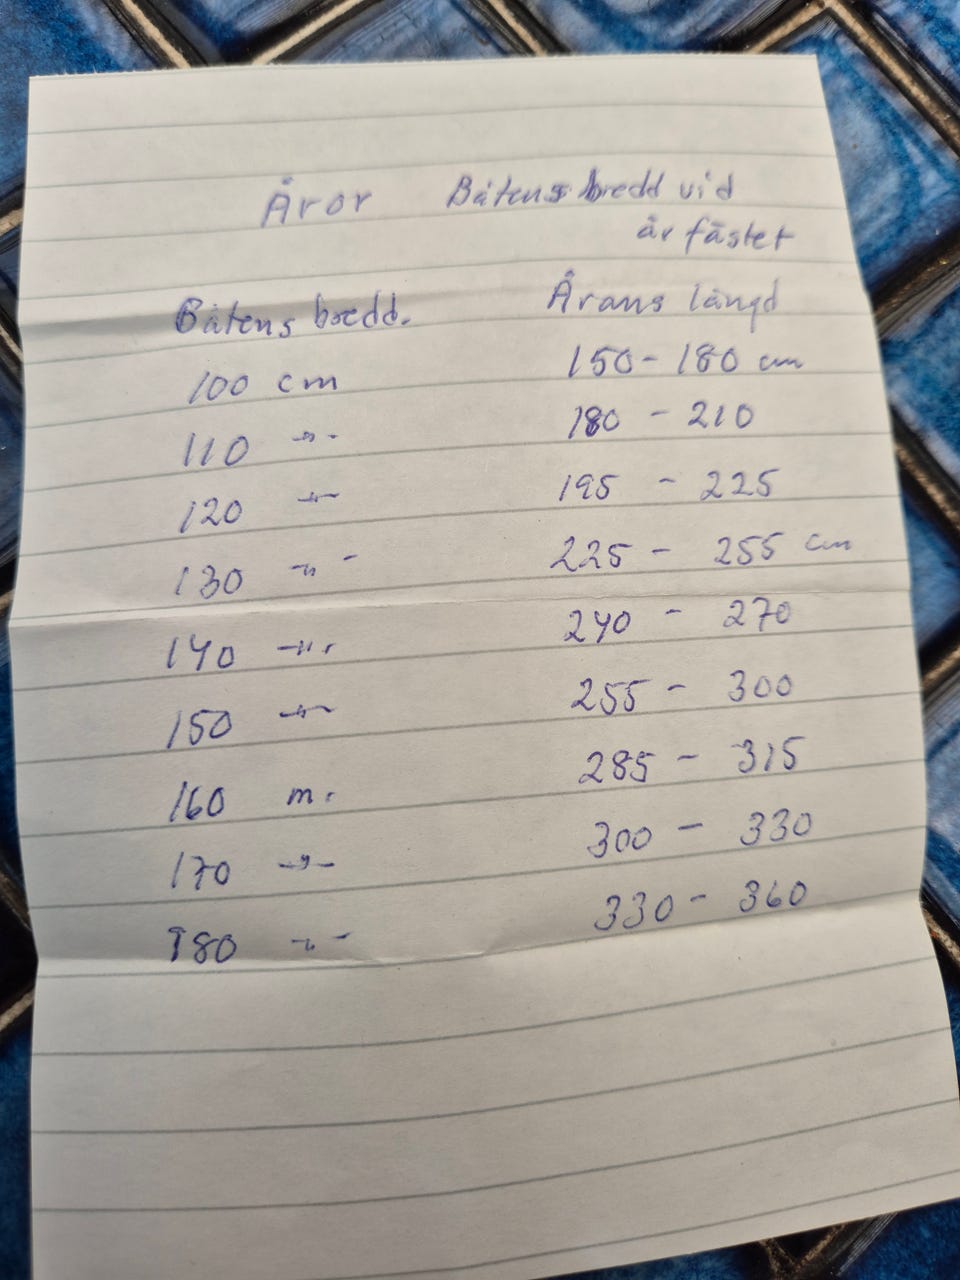 Åror Båtens bredd vid
årfästet
Båtens bredd. Årans längd
100 cm 150 - 180 cm
110 -"- 180 - 210
120 -"- 195 - 225
130 -"- 225 - 255 cm
140 -"- 240 - 270
150 -"- 255 - 300
160 -"- 285 - 315
170 -"- 300 - 330
180 -"- 330 - 360